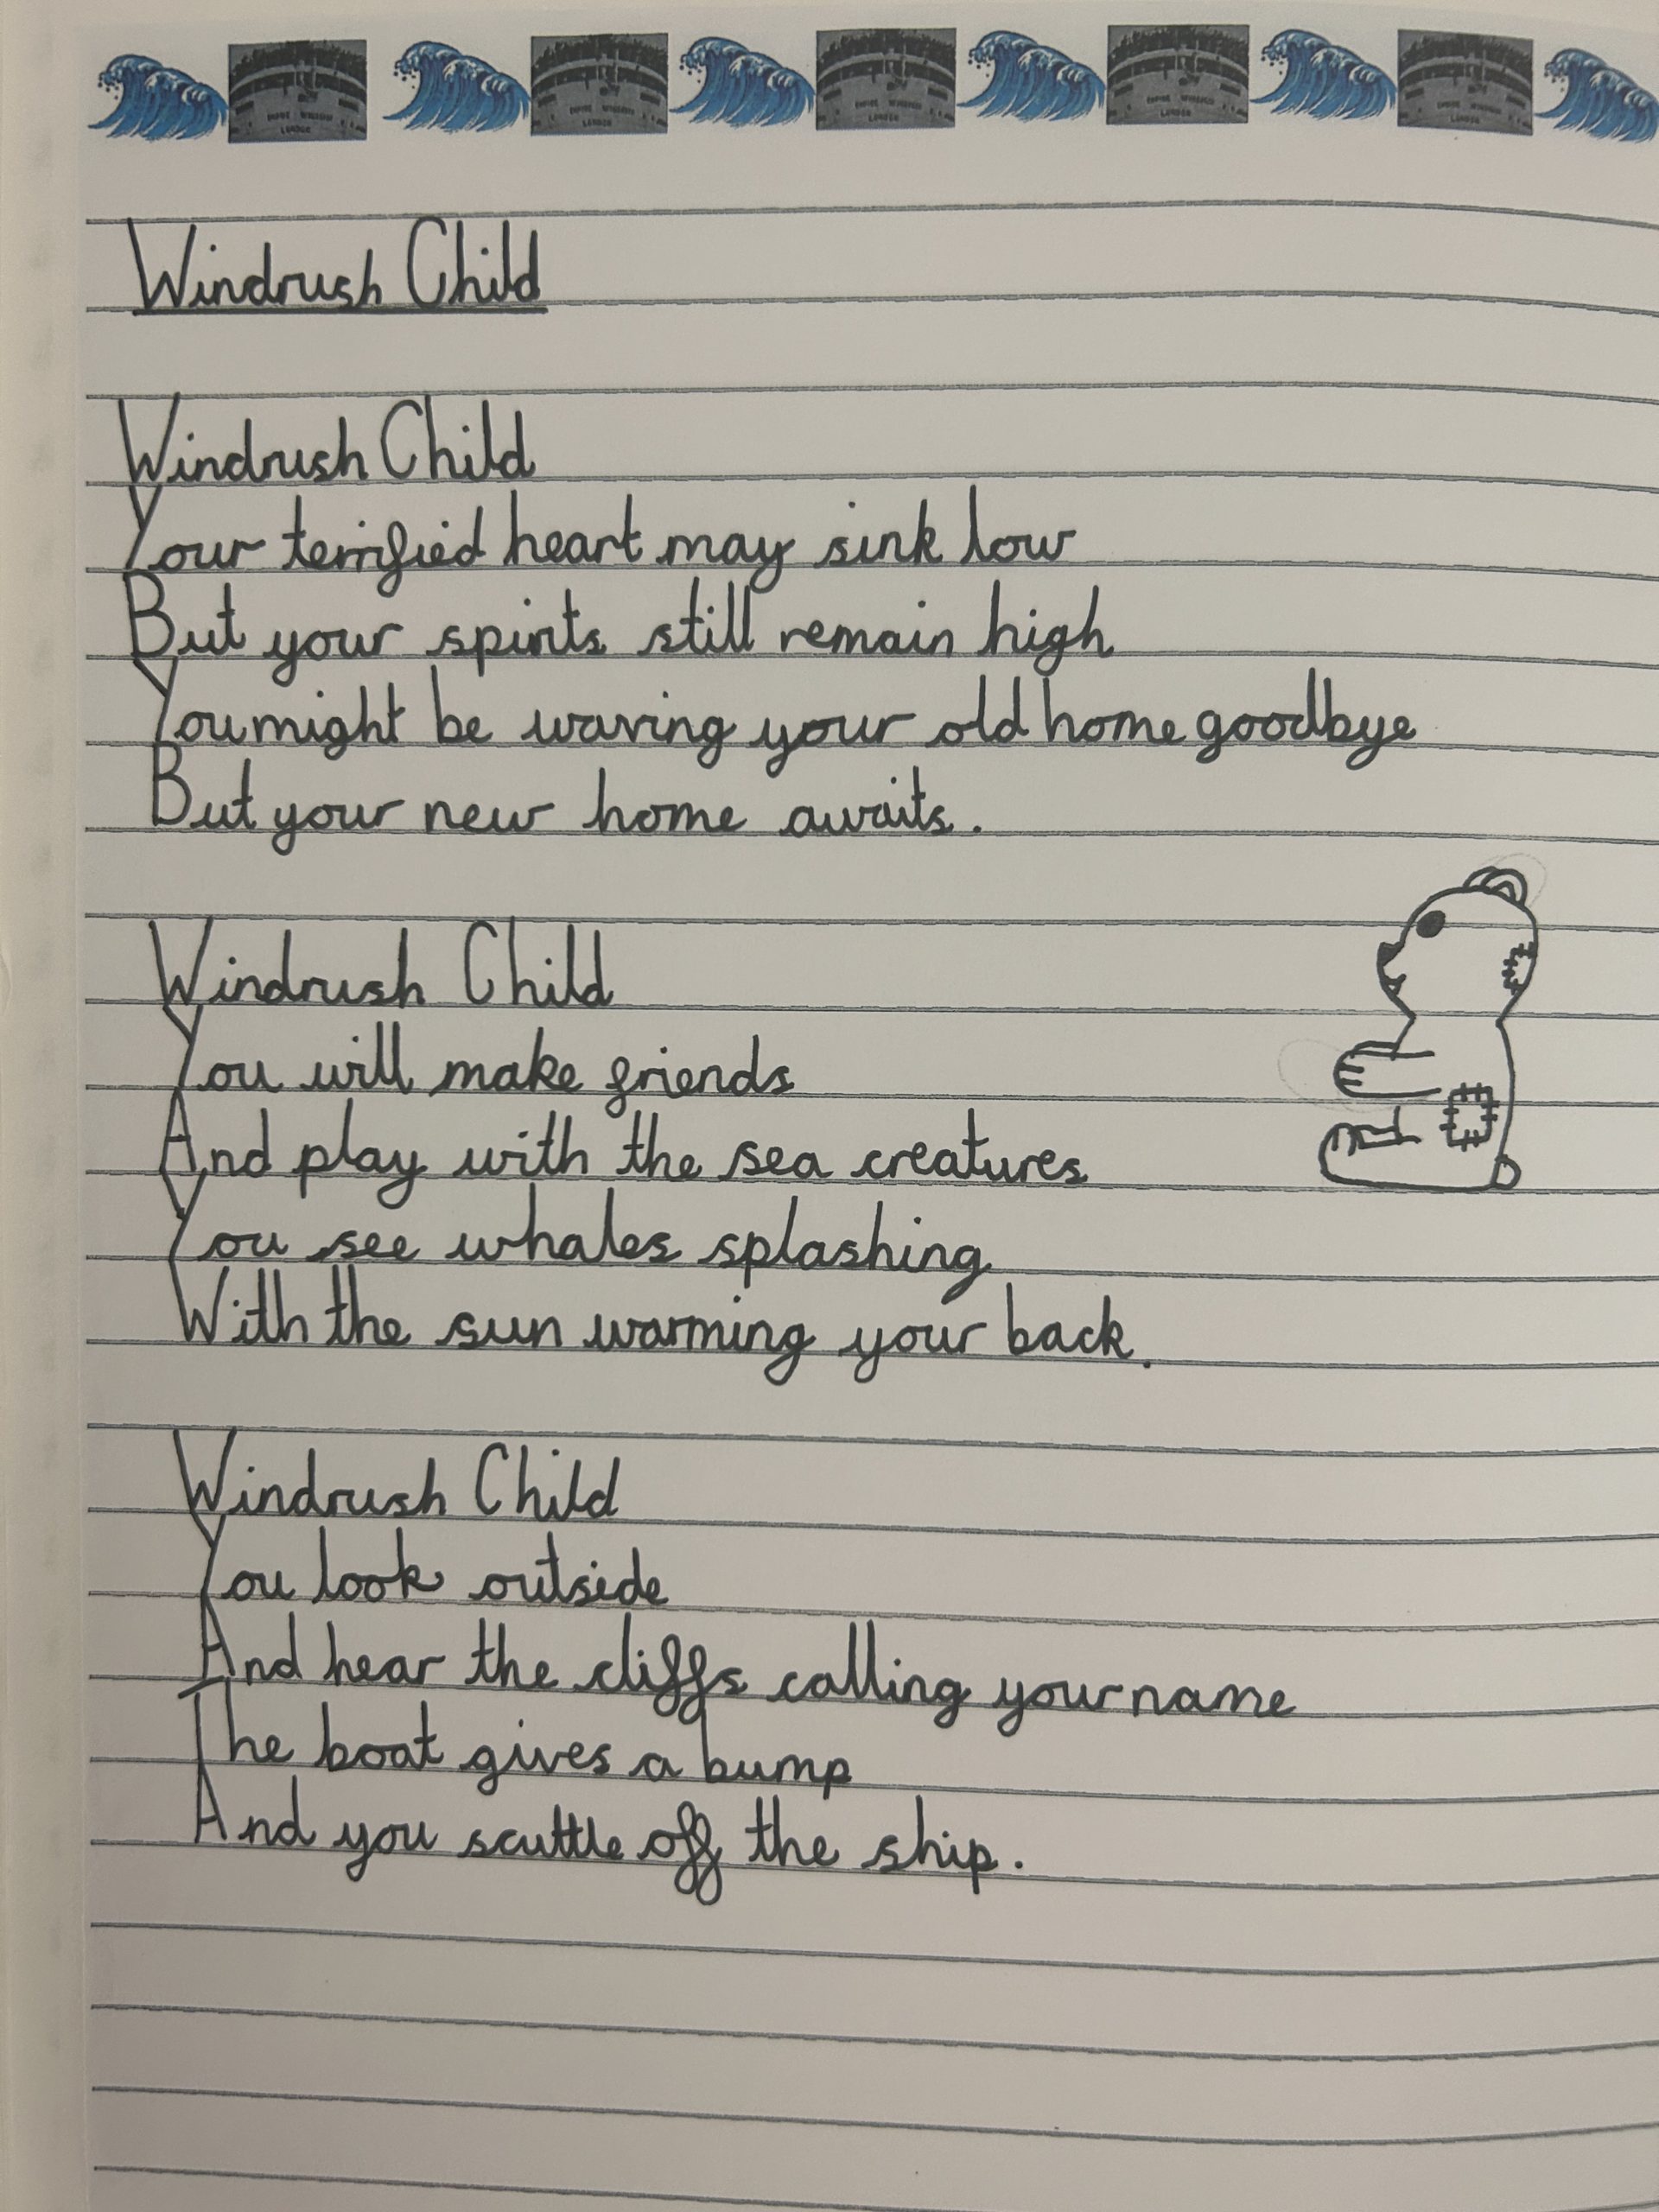 EMPIRE WINDRUSH
LONDON
EMPIRE WINDRUSH
LONDON
EMPIRE WINDRUSH
LONDON
EMPIRE WINDRUSH
LONDON
EMPIRE WINDRUSH
LONDON
Windrush Child
Windrush Child
Your terrified heart may sink low
But your spirits still remain high
You might be waving your old home goodbye
But your new home awaits.
Windrush Child
You will make friends
And play with the sea creatures
You see whales splashing
With the sun warming your back.
Windrush Child
You look outside
And hear the cliffs calling your name
The boat gives a bump
And you scuttle off the ship.